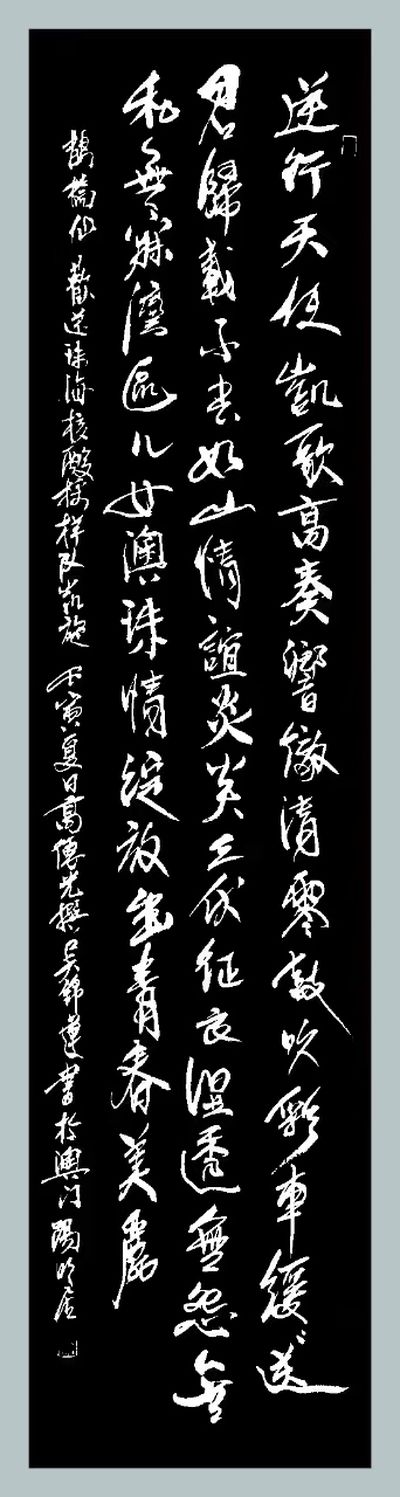 逆行天使凱歌高奏響徹清零鼓吹彩車緩〻送
君歸載不盡如山情誼炎炎三伏征衣濕透無怨無
私無寐灣區儿女澳珠情綻放出青春美麗
鵲橋仙 歡送珠海核酸採樣隊凱旋 壬寅夏日高傳光撰 吳錦蓮書於澳门陽明居